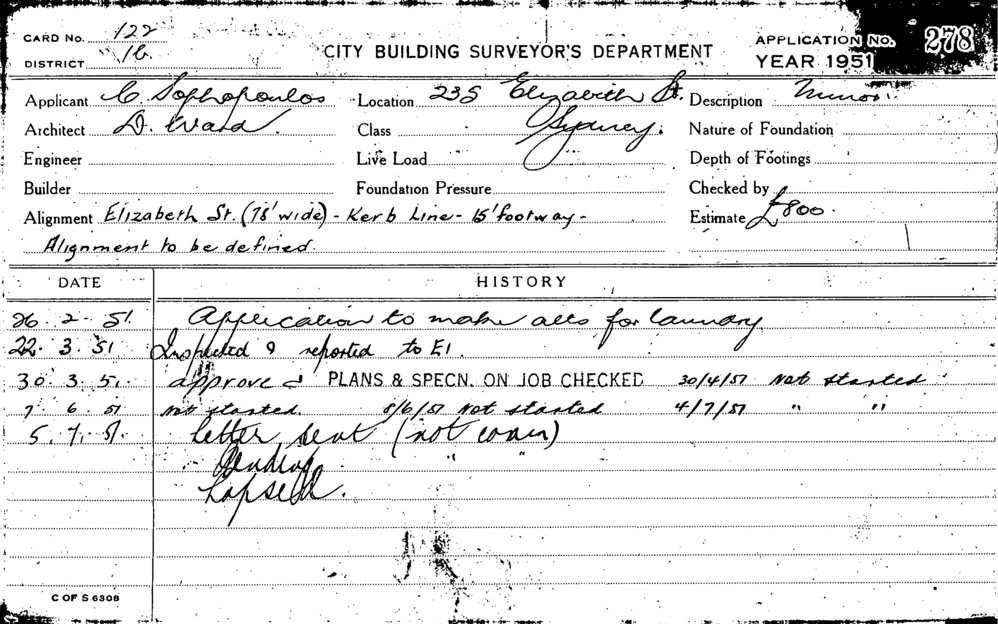 CARD No. 122
DISTRICT 16.
CITY BUILDING SURVEYOR'S DEPARTMENT
APPLICATION No. 278
YEAR 1951
Applicant C Sophopoulos Location 235 Elizabeth St. Description Minor.
Architect D. Ward. Class Sydney. Nature of Foundation
Engineer Live Load Depth of Footings
Builder Foundation Pressure Checked by
Alignment Elizabeth St. (78' wide) - Kerb Line - 15' footway - Estimate £800.
Alignment to be defined.
DATE HISTORY
26. 2. 51. Application to make alts for laundry
22. 3. 51 Inspected & reported to E1.
30. 3. 51 approved PLANS & SPECN. ON JOB CHECKED 30/4/51 Not started
7. 6. 51 not started. 8/6/51 Not started 4/7/51 " "
5. 7. 51. letter sent (not comm)
Pending " "
Lapsed.
C OF S 6308